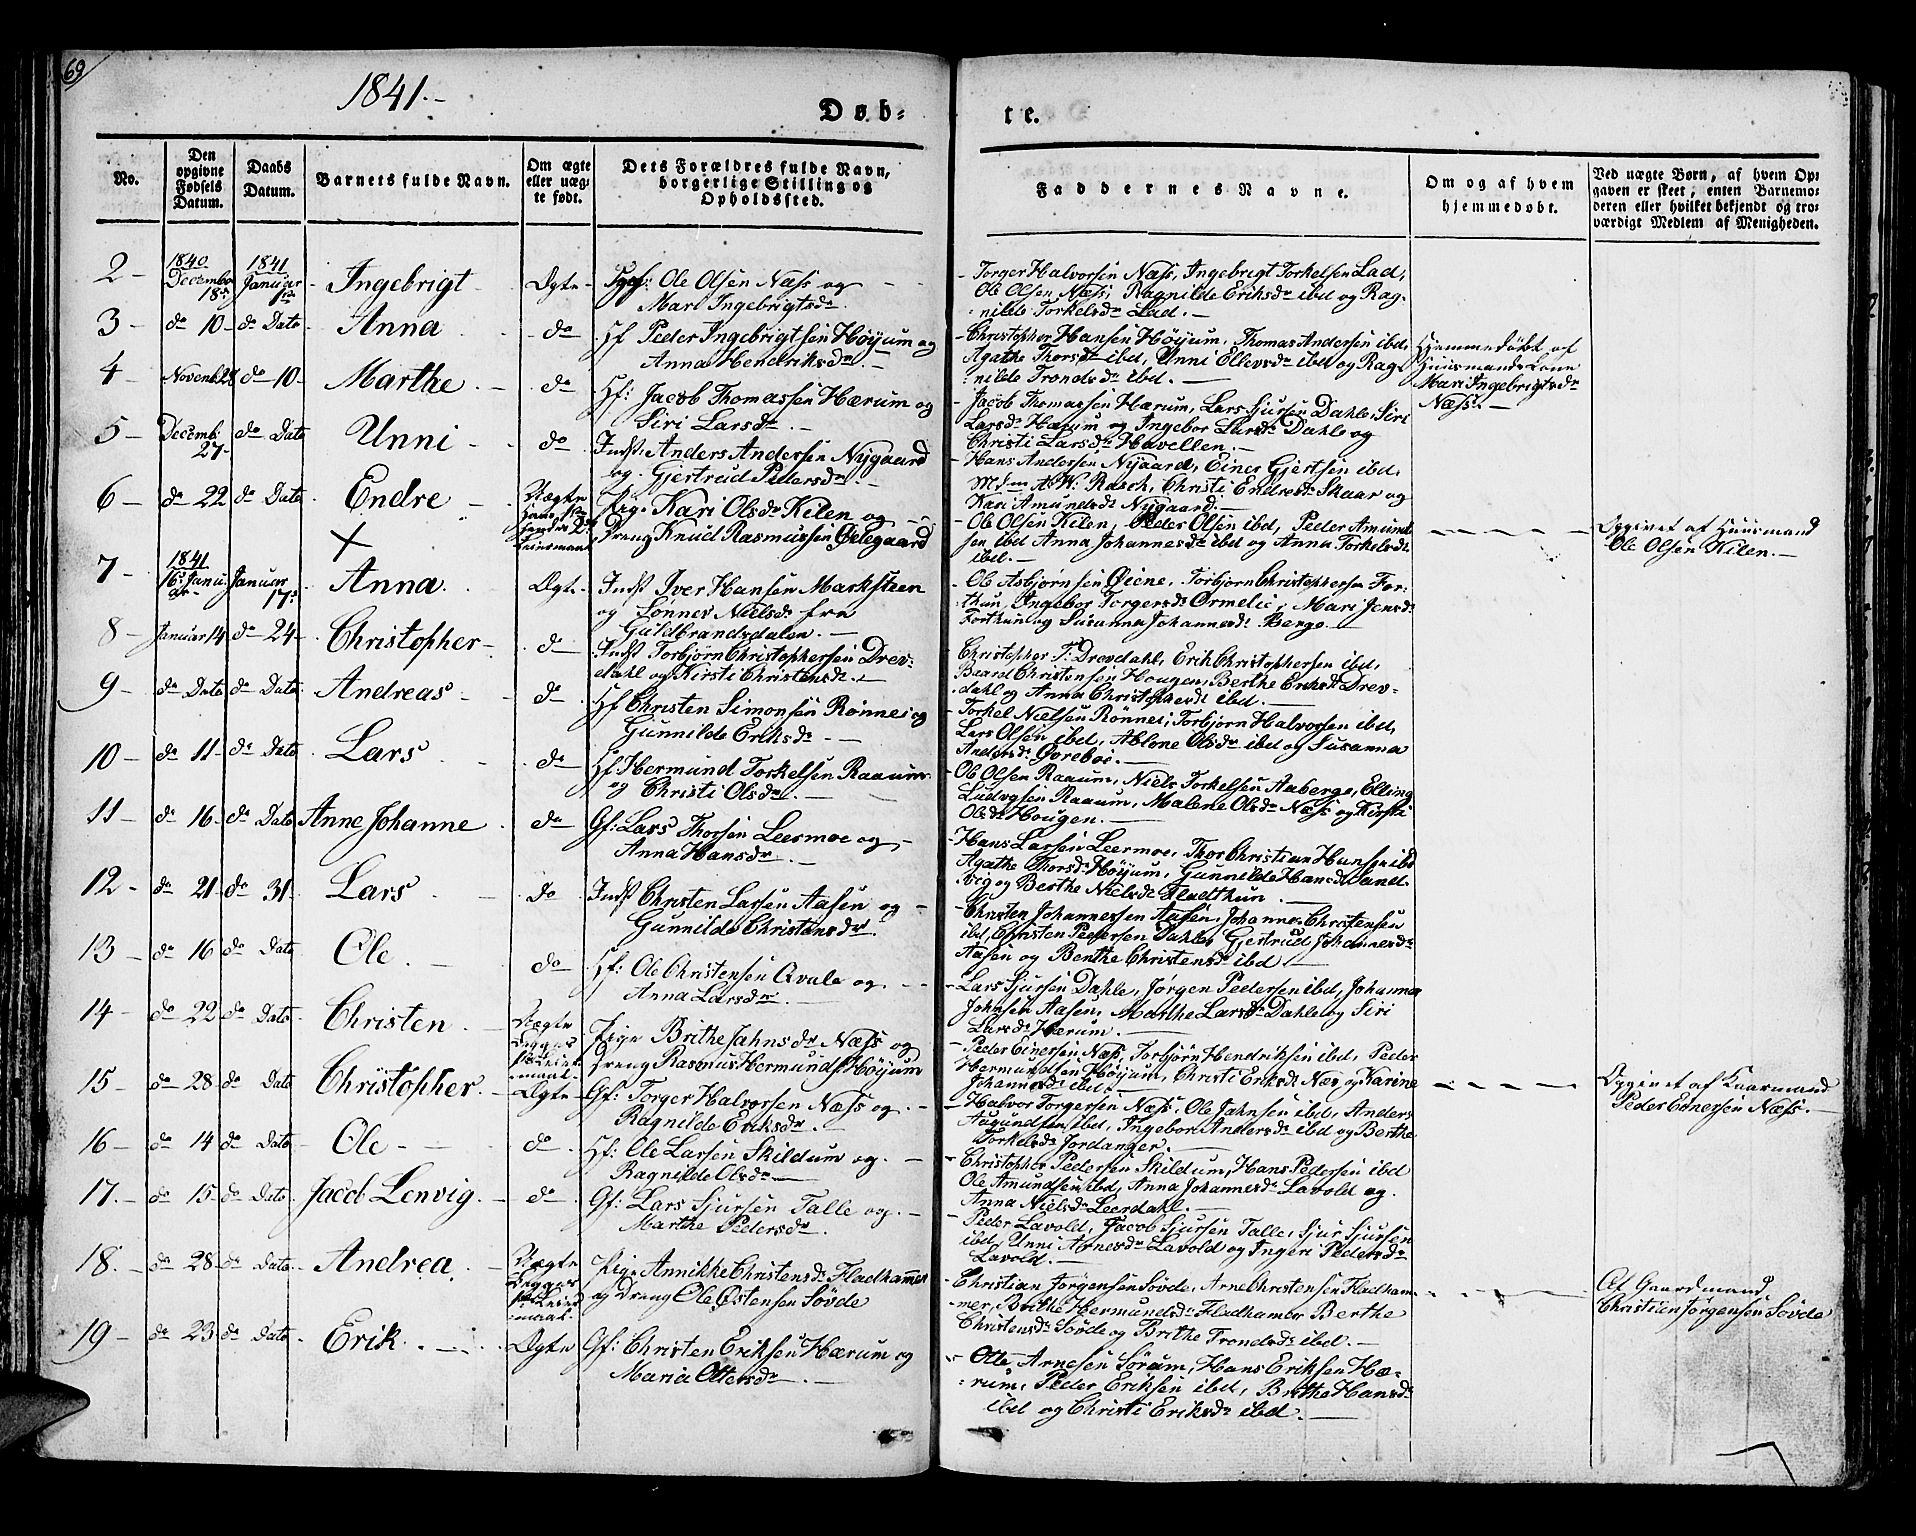 69
1841.-
Døb-
te.
No.
Den opgivne Fødsels Datum.
Daabs Datum.
Barnets fulde Navn.
Om ægte eller uægte født.
Dets Forældres fulde Navn, borgerlige Stilling og Opholdssted.
Faddernes Navne.
Om og af hvem hjemmedøbt.
Ved uægte Børn, af hvem Opgaven er skeet, enten Barnemoderen eller hvilket bekjendt og troværdigt Medlem af Menigheden.
2 - 1840 Decembr 18de 1841 Januar 1ste Ingebrigt Ægte Ole Olsen Næss og
Mari Ingebrigtsdr
- Torger Halvorsen Næss, Ingebrigt Torkelsen Lad,
Ole Olsen Næss, Ragnilde Eriksdr ibd og Rag-
nilde Torkelsdr Lad.
3 - do 10 - do Dato Anna do Hf Peder Ingebrigtsen Høyum og
Anna Hendriksdr
- Christopher Hansen Høyum, Thomas Andersen ibd,
Agathe Thorsdr ibd, Unni Ellevsdr ibd og Rag-
nilde Trondsdr ibd.
Hjemmedøbt af
Huusmands Kone
Mari Ingebrigtsdr
Næss.
4 - Novemb. 28 do 10 - Marthe do Hf: Jacob Thomassen Hærum og
Siri Larsdr
- Jacob Thomassen Hærum, Lars Sjursen Dahle, Siri
Larsdr Hærum og Ingebor Larsdr Dahle og
Christi Larsdr Havellen.
5 - Decemb. 27 - do Dato Unni do Indst. Anders Andersen Nygaard
og Gjertrud Pedersdr
- Hans Andersen Nygaard, Einer Gjertsen ibd,
Mdm A. W. Rasch, Christi Endresdr Skaar og
Kari Amundsdr Nygaard.
6 - do 22 do Dato Endre Uægte
Pige Kari Olsdr Kilen og
Dreng Knud Rasmussen Ødegaard
- Ole Olsen Kilen, Peder Olsen ibd, Peder Amund-
sen ibd Anna Johannesdr ibd og Anna Torkelsdr
ibd.
Opgivet af Huusmand
Ole Olsen Kilen.
7 - 1841 16de Januar Januar 17de Anna Ægte Indst Iver Hansen Marksteen
og Lonnev Nielsdr fra
Guldbrandsdalen.
- Ole Asbjørnsen Øiene, Torbjørn Christophersen For-
thun, Ingebor Torgersdr Ormelie, Mari Jensdr
Forthun og Susanna Johannesdr Berge.
8 - Januar 14 do 24 - Christopher do Indst Torbjørn Christophersen Drev-
dahl og Kirsti Christensdr
- Christopher T. Drevdahl, Erik Christophersen ibd,
Baard Christensen Hougen, Berthe Eriksdr Drev-
dahl og Anna Christophersdr ibd.
9 - do Dato do Dato Andreas do Hf Christen Simonsen Rønnei og
Gunnilde Eriksdr
- Torkel Nielsen Rønnei, Torbjørn Halvorsen ibd,
Lars Olsen ibd, Ablone Olsdr ibd og Susanna
Andersdr Øvrebøe.
10 - do 11 - do Dato Lars do Hf Hermund Torkelsen Raaum
og Christi Olsdr
- Ole Olsen Raaum, Niels Torkelsen Aaberge, Elling
Ludvgsen Raaum, Malene Olsdr Næss og Kirsti
Olsdr Hougen.
11 - do 16 - do Dato Anne Johanne do Gf: Lars Thorsen Leermoe og
Anna Hansdr
- Hans Larsen Leermoe, Thor Christian Hansen ibd
Agathe Thorsdr Høyum, Gunnilde Hansdr Sand-
vig og Berthe Nielsdr Fladthun.
12 - do 21 do 31 Lars do Indst Christen Larsen Aasen og
Gunnilde Christensdr
- Christen Johannessen Aasen, Johannes Christensen
ibd, Christen Pedersen Dahle, Gjertrud Johannesdr
Aasen og Berthe Christensdr ibd
13 - do 16 do Dato Ole do Hf: Ole Christensen Qvale og
Anna Larsdr
- Lars Sjursen Dahle, Jørgen Pedersen ibd, Johannes
Johnsen Aasen, Marthe Larsdr Dahle og Siri
Larsdr Hærum.
14 - do 22 do Dato Christen Uægte Begges 1ste Leiermaal
Pige Brithe Jahnsdr Næss og
Dreng Rasmus Hermunds. Høyum
- Peder Einersen Næss, Torbjørn Hendriksen ibd, Peder
Hermundsen Høyum, Christi Eriksdr Næs og Karine
Johannesdr ibd.
Opgivet af Gaarmand
Peder Einersen Næss.
15 - do 28 do Dato Christopher Ægte Gf: Torger Halvorsen Næss og
Ragnilde Eriksdr
- Halvor Torgersen Næss, Ole Jahnsen ibd, Anders
Augundsen ibd, Ingebor Andersdr ibd og Berthe
Torkelsdr Jordanger.
16 - do 14 do Dato Ole do Hf: Ole Larsen Skildum og
Ragnilde Olsdr
- Christopher Pedersen Skildum, Hans Pedersen ibd
Ole Amundsen ibd, Anna Johannesdr Lavold og
Anna Nielsdr Leerdahl.
17. - do 15 do Dato Jacob Lenvig do Gf: Lars Sjursen Talle og
Marthe Pedersdr
- Peder Lavold, Jacob Sjursen Talle, Sjur Sjursen
ibd, Unni Arnesdr Lavold og Ingeri Pedersdr
Lavold.
18. - do 28 do Dato Andrea Uægte Begges 1ste Leiermaal
Pige Annikke Christensdr Fladhammer
og Dreng Ole Østensen Søvde
- Christian Jørgensen Søvde, Arne Christensen Fladham-
mer, Brithe Hermundsdr Fladhamer Berthe
Christensdr Søvde og Brithe Trondsdr ibd.
Af Gaardmand
Christien Jørgensen Søvde
19 - do 23 do Dato Erik Ægte Gf: Christen Eriksen Hærum og
Maria Ottersdr
- Otte Arnesen Sørum, Hans Eriksen Hæ-
rum, Peder Eriksen ibd, Brithe Hansdr
ibd og Christi Eriksdr ibd.